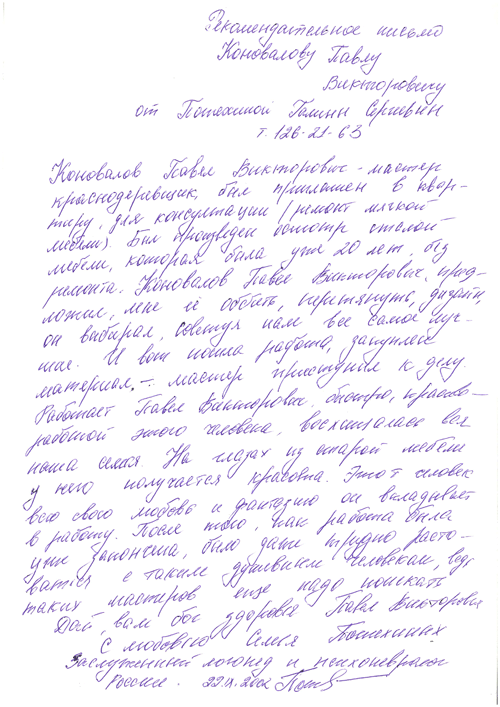 Рекомендательное письмо
Коновалову Павлу
Викторовичу
от Потехиной Галины Сергеевны
т. 126-21-63
Коновалов Павел Викторович - мастер
краснодеревщик, был приглашен в квар-
тиру, для консультации (ремонт мягкой
мебели). Был произведен осмотр спальной
мебели, которая была уже 20 лет, без
ремонта. Коновалов Павел Викторович, пред-
ложил, мне её оббить, перетянуть, дизайн,
он выбирал, советуя нам все самое луч-
шее. И вот пошла работа, закупили
материал. - мастер приступил к делу.
Работает Павел Викторович, быстро, красиво -
работой этого человека, восхищалась вся
наша семья. На глазах из старой мебели
у него получается красавица. Этот человек
всю свою любовь и фантазию он вкладывает
в работу. После того, как работа была
уже закончена, было даже трудно расста-
ваться с таким душевным человеком, ведь
таких мастеров еще надо поискать
Дай, вам бог здоровья Павел Викторович
С любовью Семья Потехиных
Заслуженный логопед и психоневролог
России.